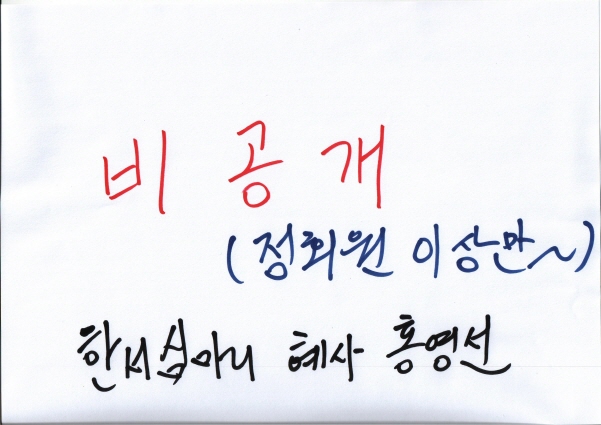 비공개
(정회원 이상만~)
한서심마니 혜사 홍영선